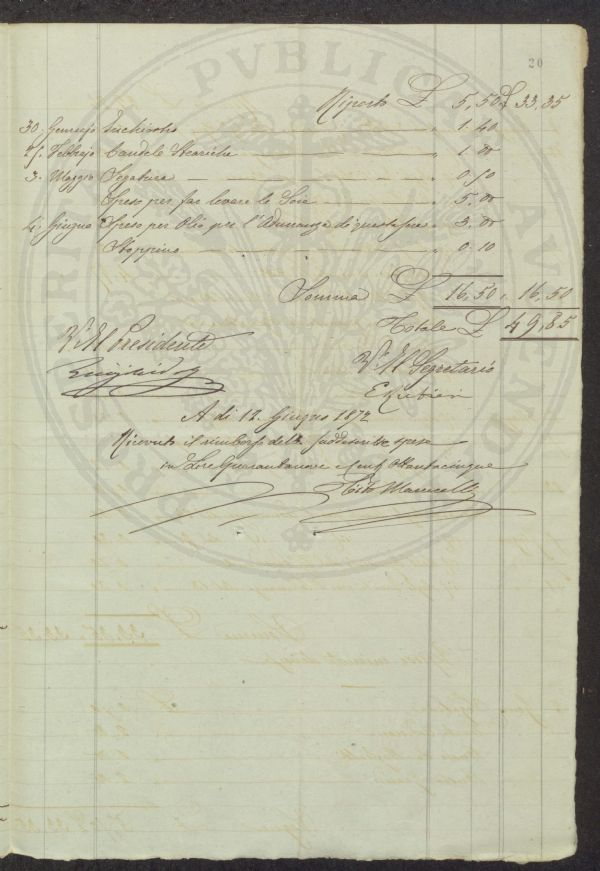 20
Riporto £ 5,50 £ 33,35
30. Gennajo Inchiostro " 1.40
Febbrajo Candele Steariche " 1.00
3. Maggio Segatura " 0,50
Spese per far levare le " 5,00
4. Giugno Spese per Olio per l'Adunanza di questa sera " 3.00
Stoppino " 0.10
Somma £ 16,50 " 16,50
Totale £ 49,85
V° Il Presidente
V° Il Segretario
E Rubieri
A dì 12. Giugno 1872
Ricevuto il rimborso delle suddescritte spese
in Lire Quarantanove e Cent Ottantacinque
Tito
PVBLICA